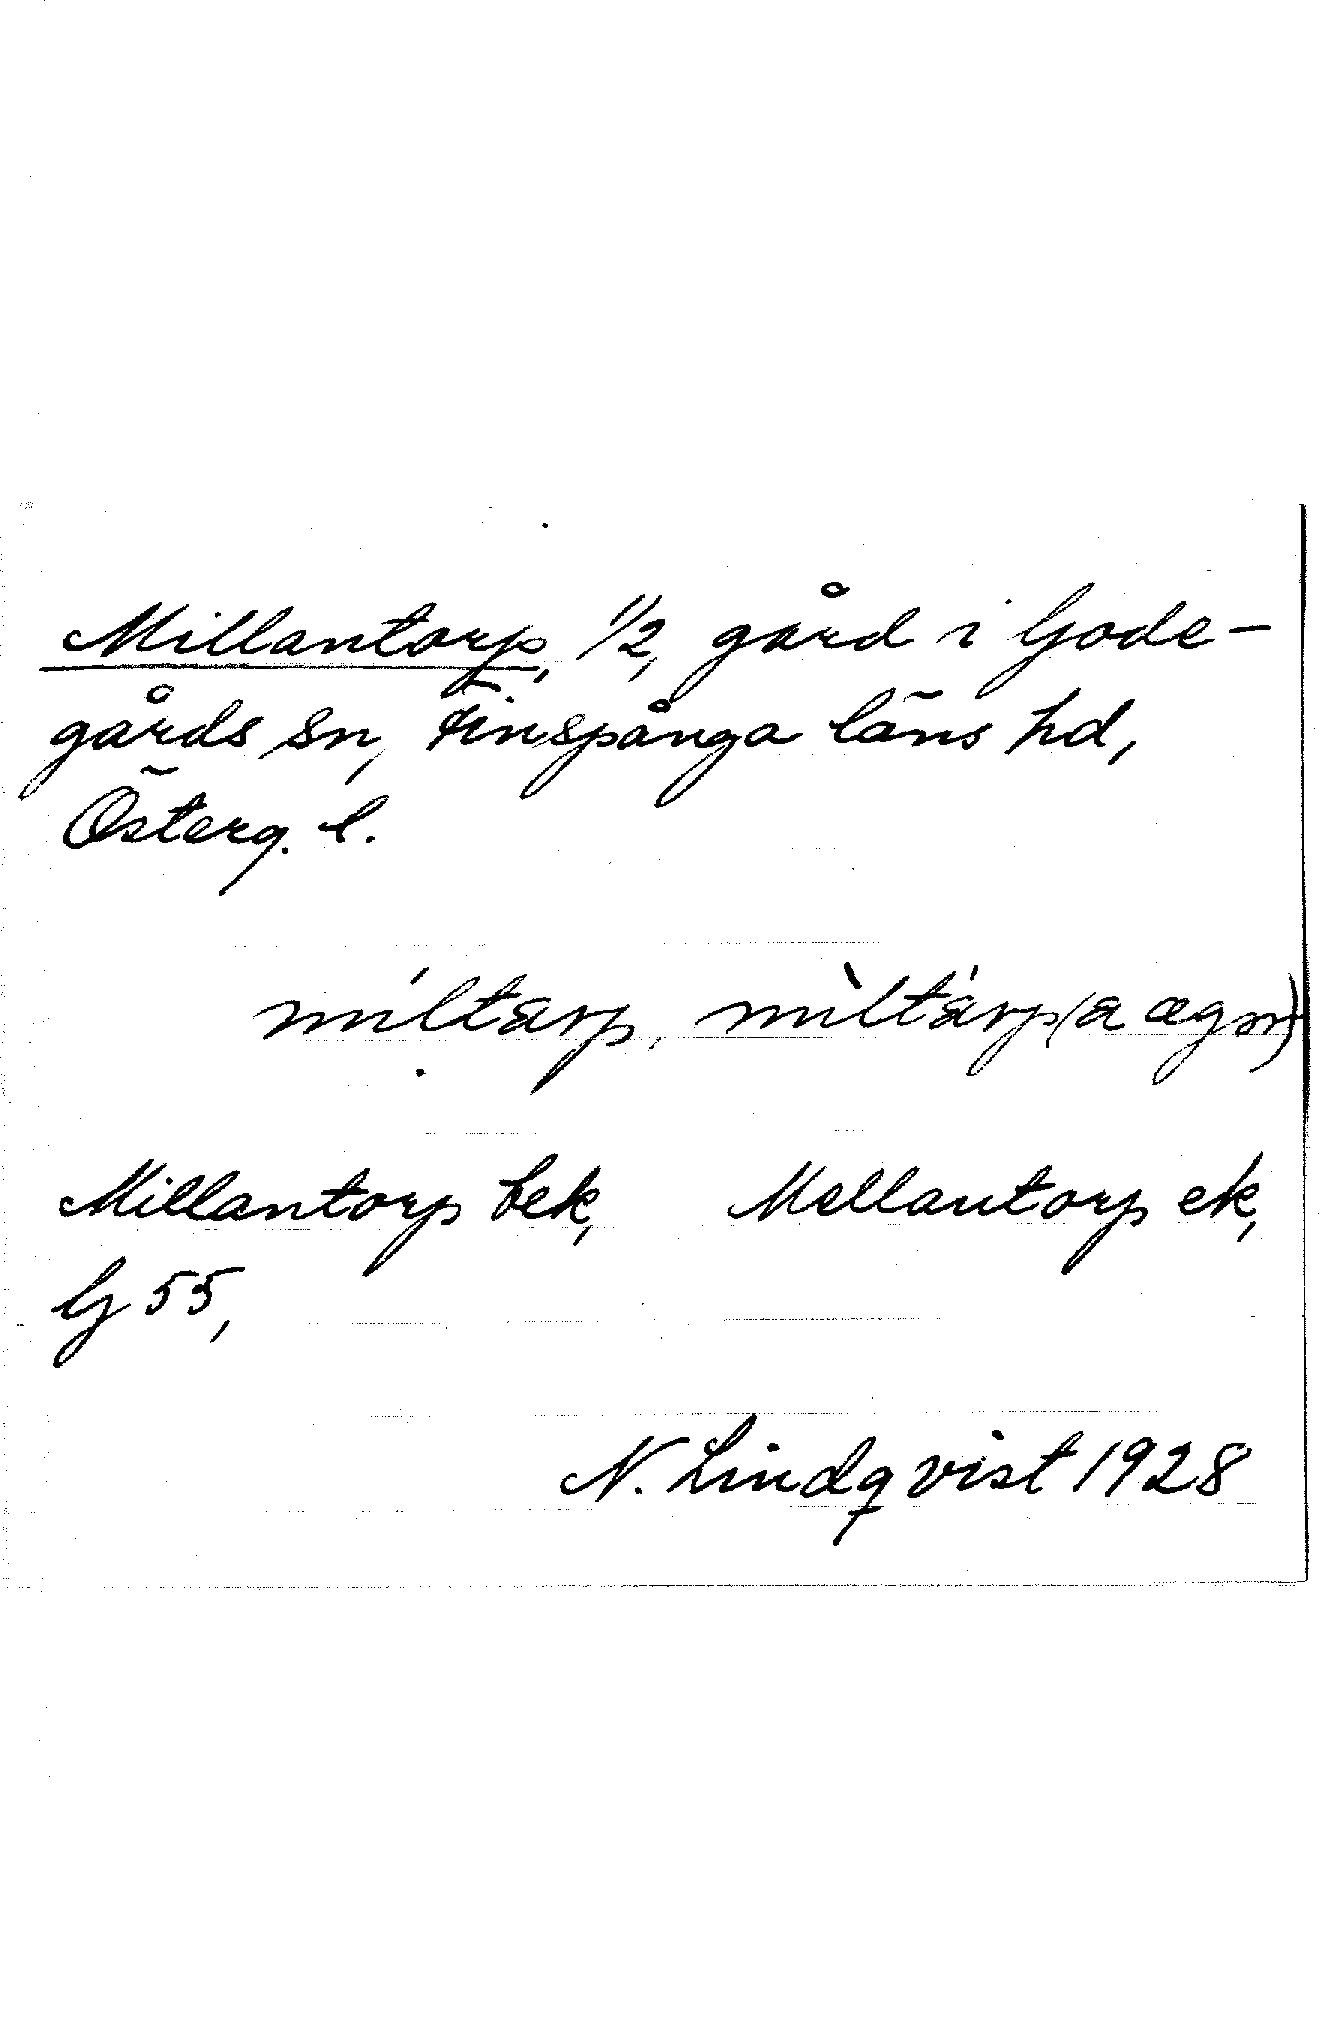 Millantorp, 1/2, gård i Gode-
gårds sn, Finspånga läns hd,
Österg. l.
míltarp, mìltàrp (a ægn)
Millantorp bek, Mellantorp ek,
G 55,
N. Lindqvist 1928